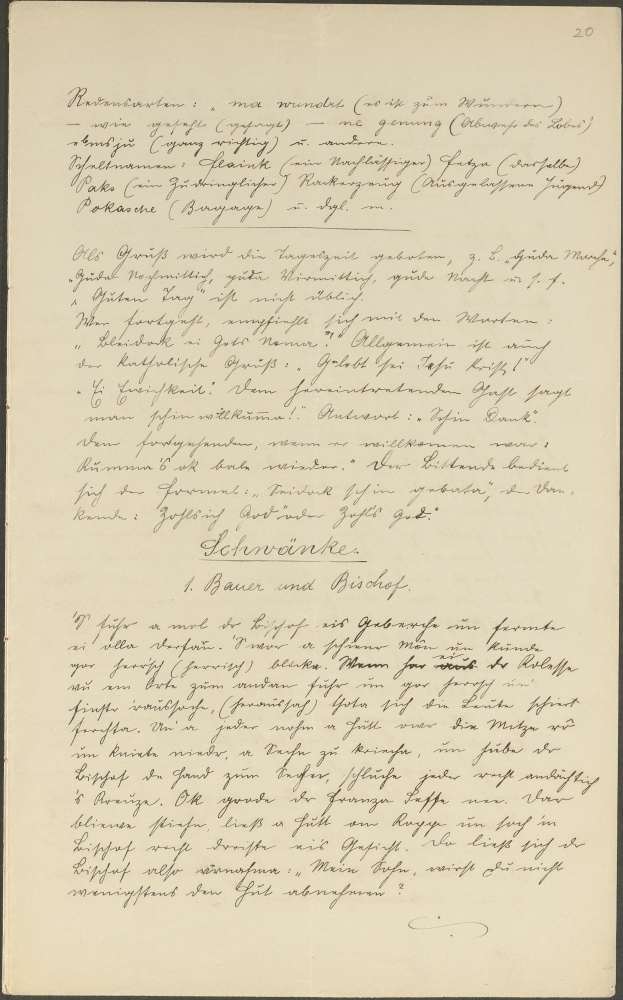 20
Redensarten: "ma wundat (es ist zum Wundern)
- wie geseht (gesagt) - ne genung (Abwehr des Lobes)
ebmsju (ganz richtig) u. andere.
Scheltnamen: Flaiuk (ein Nachlässiger) Fetza (derselbe)
Paks (ein Zudringlicher) Rackerzeug (Ausgelassene Jugend)
Pokasche (Bagage) u. dgl. m.
Als Gruß wird die Tageszeit geboten, z. B. "Guda Morche",
"Guda Nochmittich, guda Virmittich, gude Nacht u. s. f.
"Guten Tag" ist nicht üblich.
Wer fortgeht, empfiehlt sich mit den Worten:
"Bleidock ei Gots Noma!" Allgemein ist auch
der katholische Gruß: "Gelobt sei Jesu Krist!"
"Ei Ewichkeit." Dem hereintretenden Gast sagt
man schin willkumma!". Antwort: "Schin Dank".
Dem fortgehenden, wenn er willkommen war:
Kumma S ok bale wieder." Der Bittende bedient
sich der Formel: "Seidock schin gebata", der Dan-
kende: Zohlsich God" oder Zohls God."
Schwänke.
1. Bauer und Bischof.
'S fuhr a mol dr Bischof eis Geberche un fermte
ei olla Derfan. 'S wor a schiener Mon un kunde
gor herrsch (herrisch) blicka. Wenn har ei dr Kolesse
vu em Orte zum andan fuhr un gor herrsch un
finstr 'raussoche, (heraussah) thota sich die Leute schier
ferchta. Un a jeder nohm a Hutt owr die Mitze ro
un kniete niedr, a Sechn zu kriecha, un hube dr
Bischof de Hand zum Sechn, schluche jeder recht andächtich
's Kreuze. Ok groode dr Franza Seffe nee. Dar
bliewe stiehn, ließ a Hutt om Koppe un soch 'm
Bischof recht dreiste eis Gesicht. Do ließ sich dr
Bischof also varnahma: "Mein Sohn, wirst Du nicht
wenigstens den Hut abnehmen?